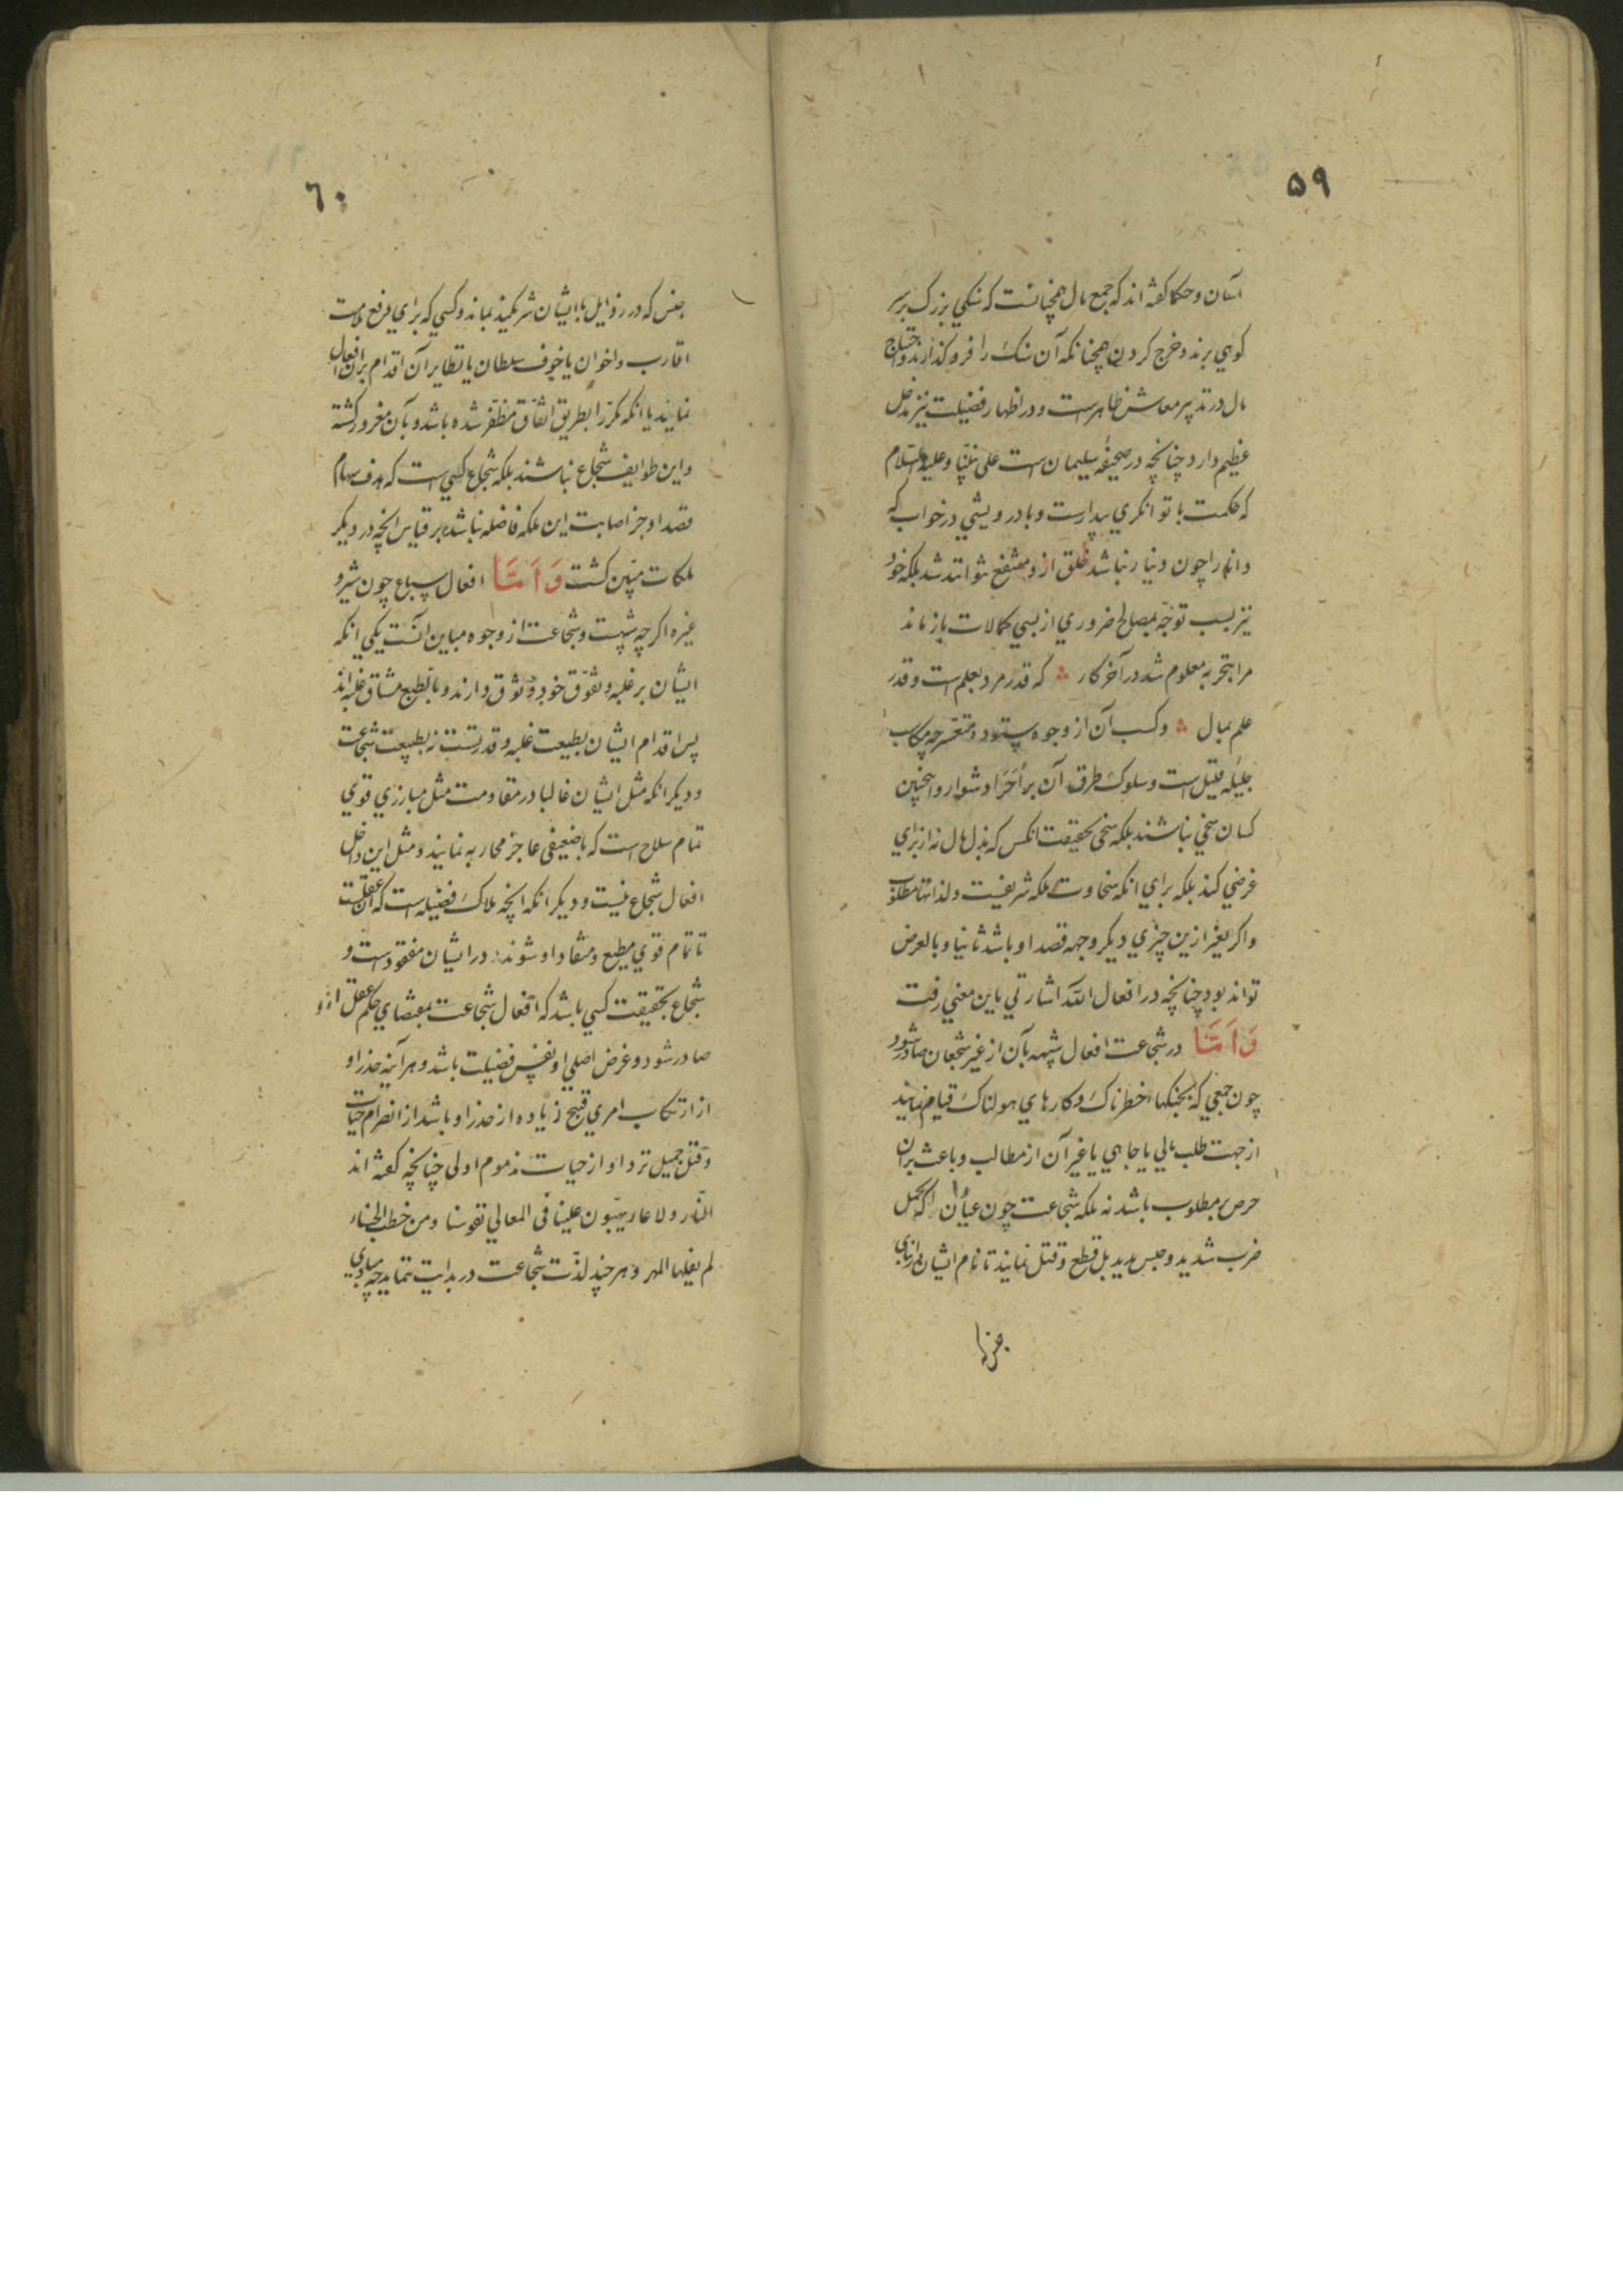 ۵۹
آسان و حکما کفته اند که جمع مال همچنانست که سنکی بزرک بر سر
کوهی برند و خرج کردن همچنانکه آن سنک را فرو کذارند و احتیاج
مال در تدبیر معاش ظاهر است و در اظهار فضیلت نیز مدخل
عظیم دارد چنانچه در صحیفه سلیمان است علی نبینا و علیه السلام
که حکمت با توانکری بیدارست و با درویشی در خواب که
دانا را چون دنیا نباشد خلق ازو منتفع نتوانند شد بلکه خود
نیز بسبب توجه بمصالح ضروری از بسی کمالات باز ماند
مرا بتجربه معلوم شد در آخر کار که قدر مرد بعلم است و قدر
علم بمال و کسب آن از وجوه ستوده متعسر چه مکاسب
جمیله قلیل است و سلوک طرق آن بر احرار دشوار و اینچنین
کسان سخی نباشند بلکه سخی بحقیقت انکس که بذل مال نه از برای
غرضی کند بلکه برای انکه سخاوت ملکه شریفیست و لذاتها مطلوب
و اکر بغیر ازین چیزی دیکر وجهه قصد او باشد ثانیا و بالعرض
تواند بود چنانچه در افعال الله اشارتی باین معنی رفت
وَاَمَّا در شجاعت افعال شبیهه بآن از غیر شجعان صادر شود
چون جمعی که بجنکهاء خطرناک و کارهای هولناک قیام نمایند
از جهت طلب مالی یا جاهی یا غیر آن از مطالب و باعث بران
حرص بمطلوب باشد نه ملکه شجاعت چون عیاران که تحمل
ضرب شدید و حبس مدید بل قطع و قتل نمایند تا نام ایشان در ابنای
جنس
٦٠
جنس که در رذایل با ایشان شریکیند بماند و کسی که برای رفع ملامت
اقارب و اخوان یا خوف سلطان یا نظایر آن اقدام بران افعال
نمایند یا انکه مکررا بطریق اتفاق مظفر شده باشد و بآن مغرور کشته
و این طوایف شجاع نباشند بلکه شجاع کسی است که هدف سهام
قصد او جز اصابت این ملکه فاضله نباشد بر قیاس انچه در دیکر
ملکات مبین کشت وَاَمَّا افعال سباع چون شیر و
غیره اکر چه شبیهست و شجاعت از وجوه مباین انست یکی انکه
ایشان بر غلبه و تفوق خود وثوق دارند و بالطبع مشتاق غلبه اند
پس اقدام ایشان بطبیعت غلبه و قدرتست نه بطبیعت شجاعت
و دیکر انکه مثل ایشان غالبا در مقاومت مثل مبارزی قوی
تمام سلاح است که با ضعیفی عاجز محاربه نمایند و مثل این داخل
افعال شجاع نیست و دیکر انکه انچه ملاک فضیلت است که آن عقلست
تا تمام قوی مطیع و منقاد او شوند در ایشان مفقود است و
شجاع بحقیقت کسی باشد که افعال شجاعت بمقتضای حکم عقل ازو
صادر شود و غرض اصلی او نفس فضیلت باشد و هر آینه حذر او
از ارتکاب امری قبیح زیاده از حذر او باشد از انصرام حیات
و قتل جمیل نزد او از حیات مذموم اولی چنانچه کفته اند
النار و لا عار یهون علینا فی المعالی نفوسنا و من خطب الحسناء
لم یغلها المهر و هر چند لذت شجاعت در بدایت ننماید چه مبادی